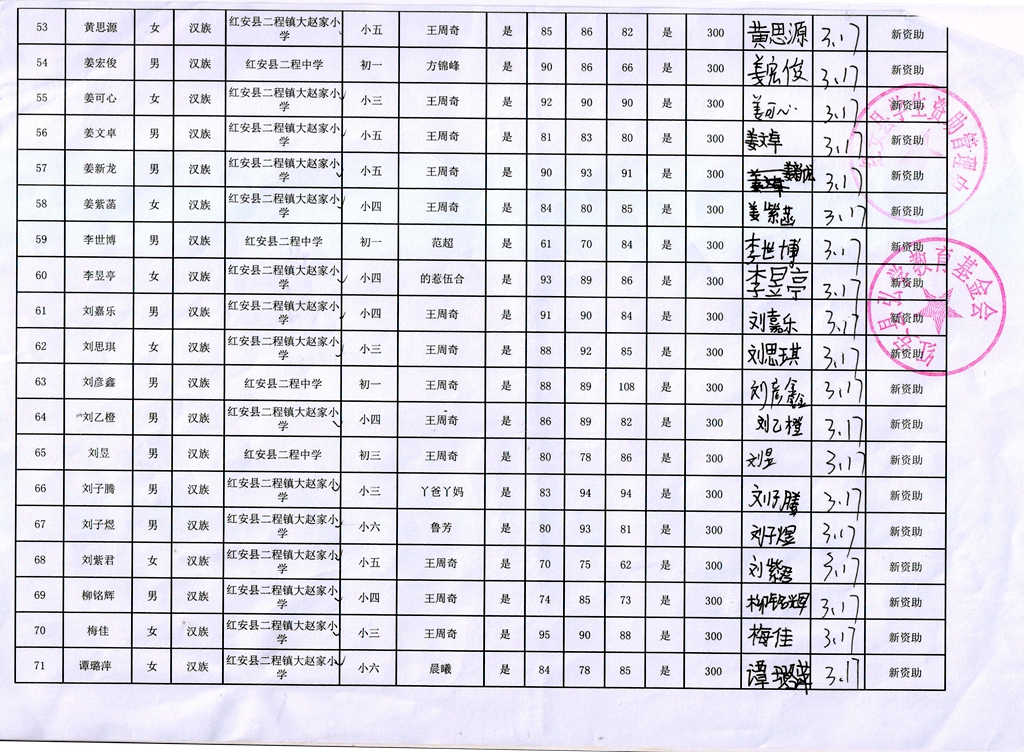 53 黄思源 女 汉族 红安县二程镇大赵家小学 小五 王周奇 是 85 86 82 是 300 黄思源 3.17 新资助
54 姜宏俊 男 汉族 红安县二程中学 初一 方锦峰 是 90 86 66 是 300 姜宏俊 3.17 新资助
55 姜可心 女 汉族 红安县二程镇大赵家小学 小三 王周奇 是 92 90 90 是 300 姜可心 3.17 新资助
56 姜文卓 男 汉族 红安县二程镇大赵家小学 小五 王周奇 是 81 83 80 是 300 姜文卓 3.17 新资助
57 姜新龙 男 汉族 红安县二程镇大赵家小学 小五 王周奇 是 90 93 91 是 300 姜新龙 3.17 新资助
58 姜紫菡 女 汉族 红安县二程镇大赵家小学 小四 王周奇 是 84 80 85 是 300 姜紫菡 3.17 新资助
59 李世博 男 汉族 红安县二程中学 初一 范超 是 61 70 84 是 300 李世博 3.17 新资助
60 李昱亭 女 汉族 红安县二程镇大赵家小学 小四 的惹伍合 是 93 89 86 是 300 李昱亭 3.17 新资助
61 刘嘉乐 男 汉族 红安县二程镇大赵家小学 小四 王周奇 是 91 90 84 是 300 刘嘉乐 3.17 新资助
62 刘思琪 女 汉族 红安县二程镇大赵家小学 小三 王周奇 是 88 92 85 是 300 刘思琪 3.17 新资助
63 刘彦鑫 男 汉族 红安县二程中学 初一 王周奇 是 88 89 108 是 300 刘彦鑫 3.17 新资助
64 刘乙橙 男 汉族 红安县二程镇大赵家小学 小四 王周奇 是 86 89 82 是 300 刘乙橙 3.17 新资助
65 刘昱 男 汉族 红安县二程中学 初三 王周奇 是 80 78 86 是 300 刘昱 3.17 新资助
66 刘子腾 男 汉族 红安县二程镇大赵家小学 小三 丫爸丫妈 是 83 94 94 是 300 刘子腾 3.17 新资助
67 刘子煜 男 汉族 红安县二程镇大赵家小学 小六 鲁芳 是 80 93 81 是 300 刘子煜 3.17 新资助
68 刘紫君 女 汉族 红安县二程镇大赵家小学 小五 王周奇 是 70 75 62 是 300 刘紫君 3.17 新资助
69 柳铭辉 男 汉族 红安县二程镇大赵家小学 小四 王周奇 是 74 85 73 是 300 柳铭辉 3.17 新资助
70 梅佳 女 汉族 红安县二程镇大赵家小学 小三 王周奇 是 95 90 88 是 300 梅佳 3.17 新资助
71 谭璐萍 女 汉族 红安县二程镇大赵家小学 小六 晨曦 是 84 78 85 是 300 谭璐萍 3.17 新资助
红安县学生资助管理中
红安县弘学教育基金会